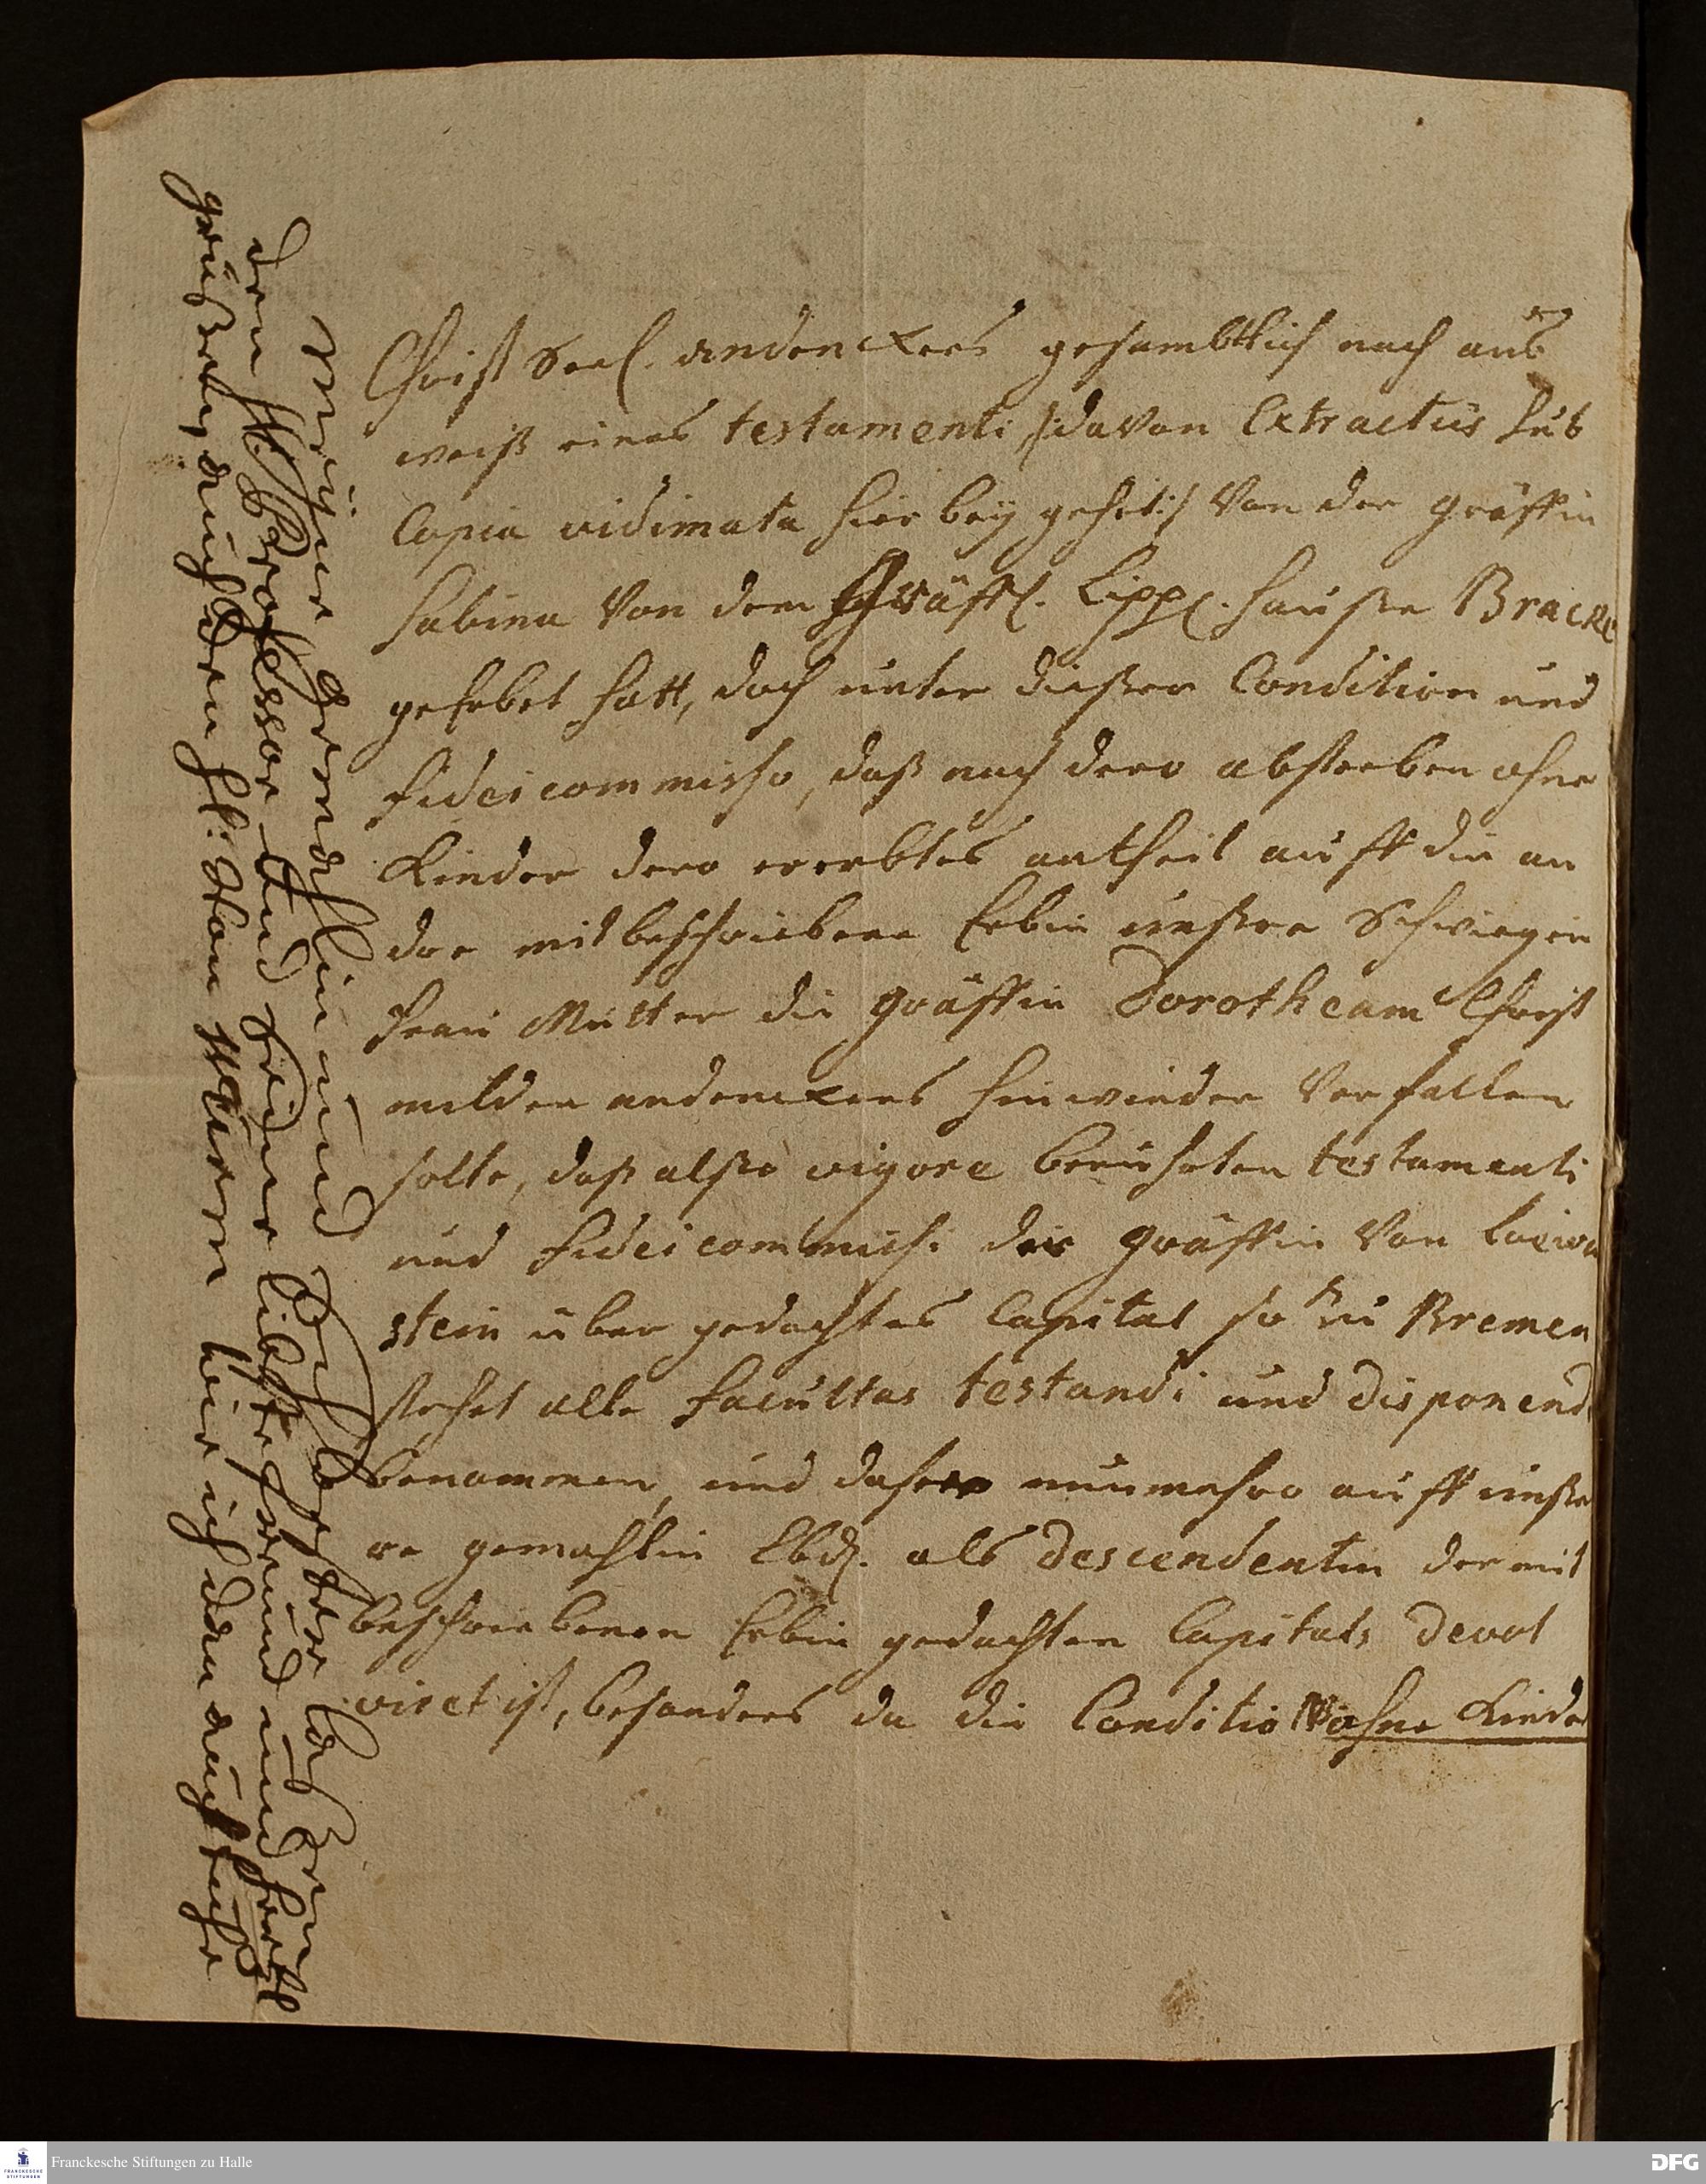 Christ Seel. andenckens gesambtlich nach aus
weiß eines testamenti /:davon Extractus sub
Copia vidimata hier bey gehet:/ Von der gräffin
Sabina Von dem Gräffl. Lippl. hauße Bracke
geerbet hatt, doch unter dießer Condition und
fideicommisso, daß nach dero absterben ohne
Kinder dero ererbtes antheil auff die an
dre mitbeschriebene Erbin unßere Schwiegerin
Frau Mutter die gräffin Dorotheam Christ
milden andenckens hinwieder Verfallen
solte, daß alßo vigore berührten testamenti
und fideicommissi der gräffin Von Loewen
stein über gedachtes Capital so zu Bremen
stehet alle facultas testandi und disponendi
benommen, und dahero nunmehro auff unße
re gemahlin Lbd. als descendentin der mit
beschriebenen Erbin gedachten Capitals devol
viret ist, besonders da die Conditio ohne Kinder
Meine gemahlin und Dochter laßen
den H. Professor und seiner libste freund und
grüßen, auch den H. von hier ich dan auch